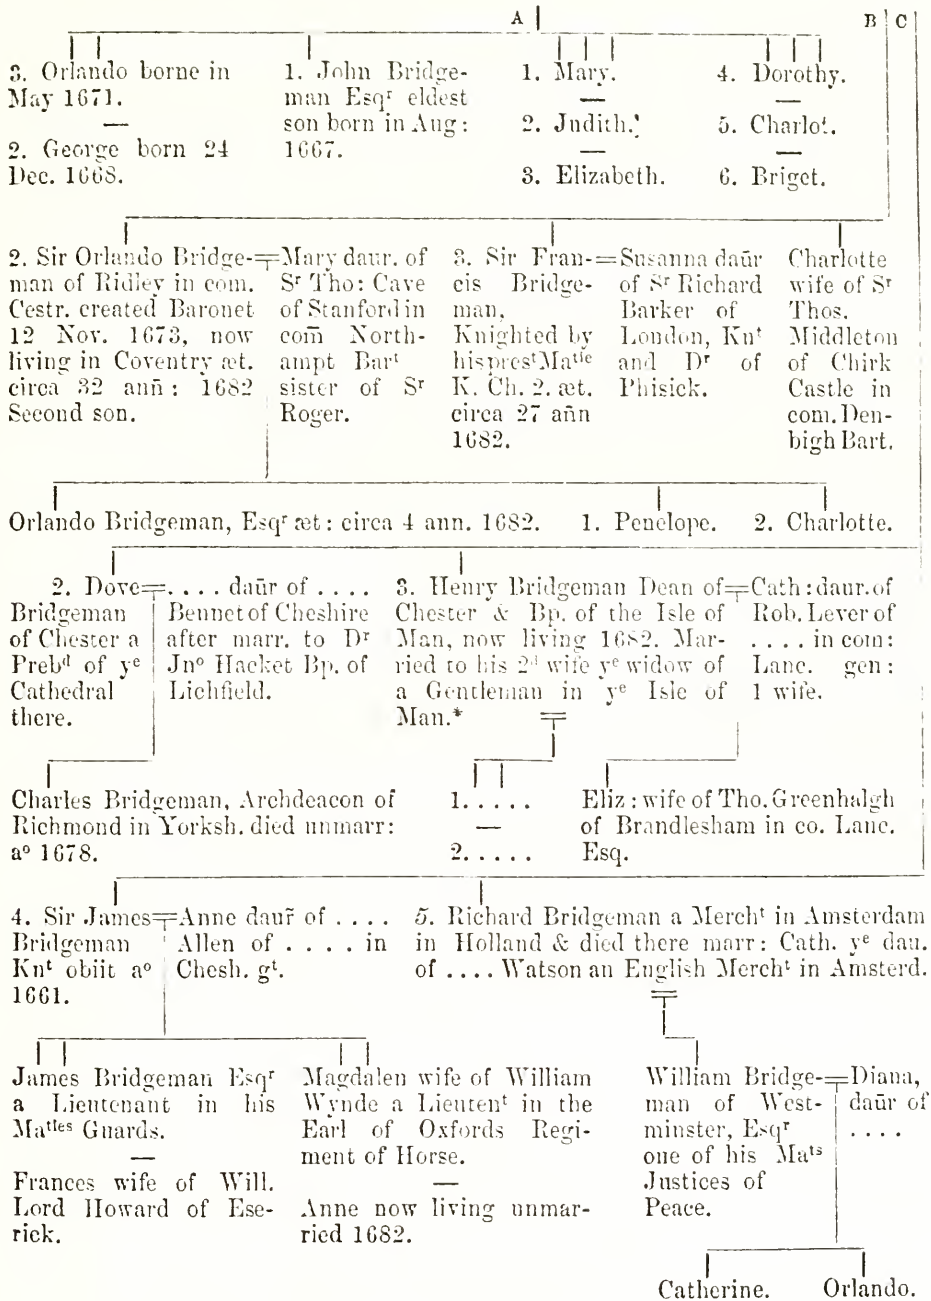 A B C
3. Orlando borne in
May 1671.
—
2. George born 24
Dec. 1668.
1. John Bridge-
man Esqʳ eldest
son born in Aug:
1667.
1. Mary.
—
2. Judith.
—
3. Elizabeth.
4. Dorothy.
—
5. Charlot.
—
6. Briget.
2. Sir Orlando Bridge-
man of Ridley in com.
Cestr. created Baronet
12 Nov. 1673, now
living in Coventry æt.
circa 32 anñ: 1682
Second son.
Mary daur. of
Sʳ Tho: Cave
of Stanford in
com̄ North-
ampt Barᵗ
sister of Sʳ
Roger.
3. Sir Fran-
cis Bridge-
man,
Knighted by
his presᵗ Maᵗⁱᵉ
K. Ch. 2. æt.
circa 27 añn
1682.
Susanna daūr
of Sʳ Richard
Barker of
London, Knᵗ
and Dʳ of
Phisick.
Charlotte
wife of Sʳ
Thos.
Middleton
of Chirk
Castle in
com. Den-
bigh Bart.
Orlando Bridgeman, Esqʳ æt: circa 4 ann. 1682. 1. Penelope. 2. Charlotte.
2. Dove
Bridgeman
of Chester a
Prebᵈ of yᵉ
Cathedral
there.
. . . . daūr of . . . .
Bennet of Cheshire
after marr. to Dʳ
Jnᵒ Hacket Bp. of
Lichfield.
3. Henry Bridgeman Dean of
Chester & Bp. of the Isle of
Man, now living 1682. Mar-
ried to his 2ᵈ wife yᵉ widow of
a Gentleman in yᵉ Isle of
Man.*
Cath: daur. of
Rob. Lever of
. . . . in com:
Lanc. gen:
1 wife.
Charles Bridgeman, Archdeacon of
Richmond in Yorksh. died unmarr:
aᵒ 1678.
1. . . . .
—
2. . . . .
Eliz: wife of Tho. Greenhalgh
of Brandlesham in co. Lanc.
Esq.
4. Sir James
Bridgeman
Knᵗ obiit aᵒ
1661.
Anne daur̄ of . . . .
Allen of . . . . in
Chesh. gᵗ.
5. Richard Bridgeman a Merchᵗ in Amsterdam
in Holland & died there marr: Cath. yᵉ dau.
of . . . . Watson an English Merchᵗ in Amsterd.
James Bridgeman Esqʳ
a Lieutenant in his
Maᵗˡᵉˢ Guards.
—
Frances wife of Will.
Lord Howard of Esc-
rick.
Magdalen wife of William
Wynde a Lieutenᵗ in the
Earl of Oxfords Regi-
ment of Horse.
—
Anne now living unmar-
ried 1682.
William Bridge-
man of West-
minster, Esqʳ
one of his Maᵗˢ
Justices of
Peace.
Diana,
daūr of
. . . .
Catherine. Orlando.